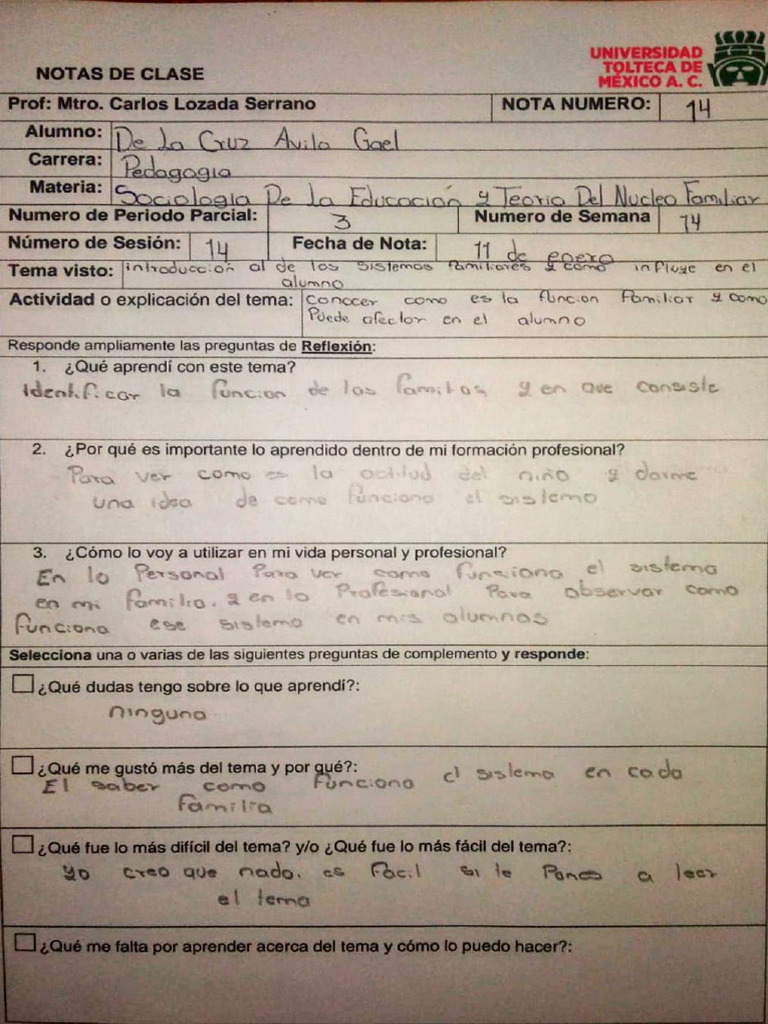 UNIVERSIDAD
TOLTECA DE
MÉXICO A. C.
NOTAS DE CLASE
Prof: Mtro. Carlos Lozada Serrano NOTA NUMERO: 14
Alumno: De La Cruz Avila Gael
Carrera: Pedagogia
Materia: Sociologia De la Educación y Teoria Del Nucleo Familiar
Numero de Periodo Parcial: 3 Numero de Semana 14
Número de Sesión: 14 Fecha de Nota: 11 de enero
Tema visto: introducción al de los sistemas familiares y como influye en el
alumno
Actividad o explicación del tema: conocer como es la funcion familiar y como
Puede afectar en el alumno
Responde ampliamente las preguntas de Reflexión:
1. ¿Qué aprendí con este tema?
Identificar la funcion de las familias y en que consiste
2. ¿Por qué es importante lo aprendido dentro de mi formación profesional?
Para ver como es la actitud del niño y darme
una idea de como funciona el sistema
3. ¿Cómo lo voy a utilizar en mi vida personal y profesional?
En lo Personal Para ver como funsiona el sistema
en mi familia. y en lo Profesional Para observar como
funciona ese sistema en mis alumnas
Selecciona una o varias de las siguientes preguntas de complemento y responde:
¿Qué dudas tengo sobre lo que aprendí?:
ninguna
¿Qué me gustó más del tema y por qué?:
El saber como funciona el sistema en cada
familia
¿Qué fue lo más difícil del tema? y/o ¿Qué fue lo más fácil del tema?:
yo creo que nada. es facil si te Pones a leer
el tema
¿Qué me falta por aprender acerca del tema y cómo lo puedo hacer?: